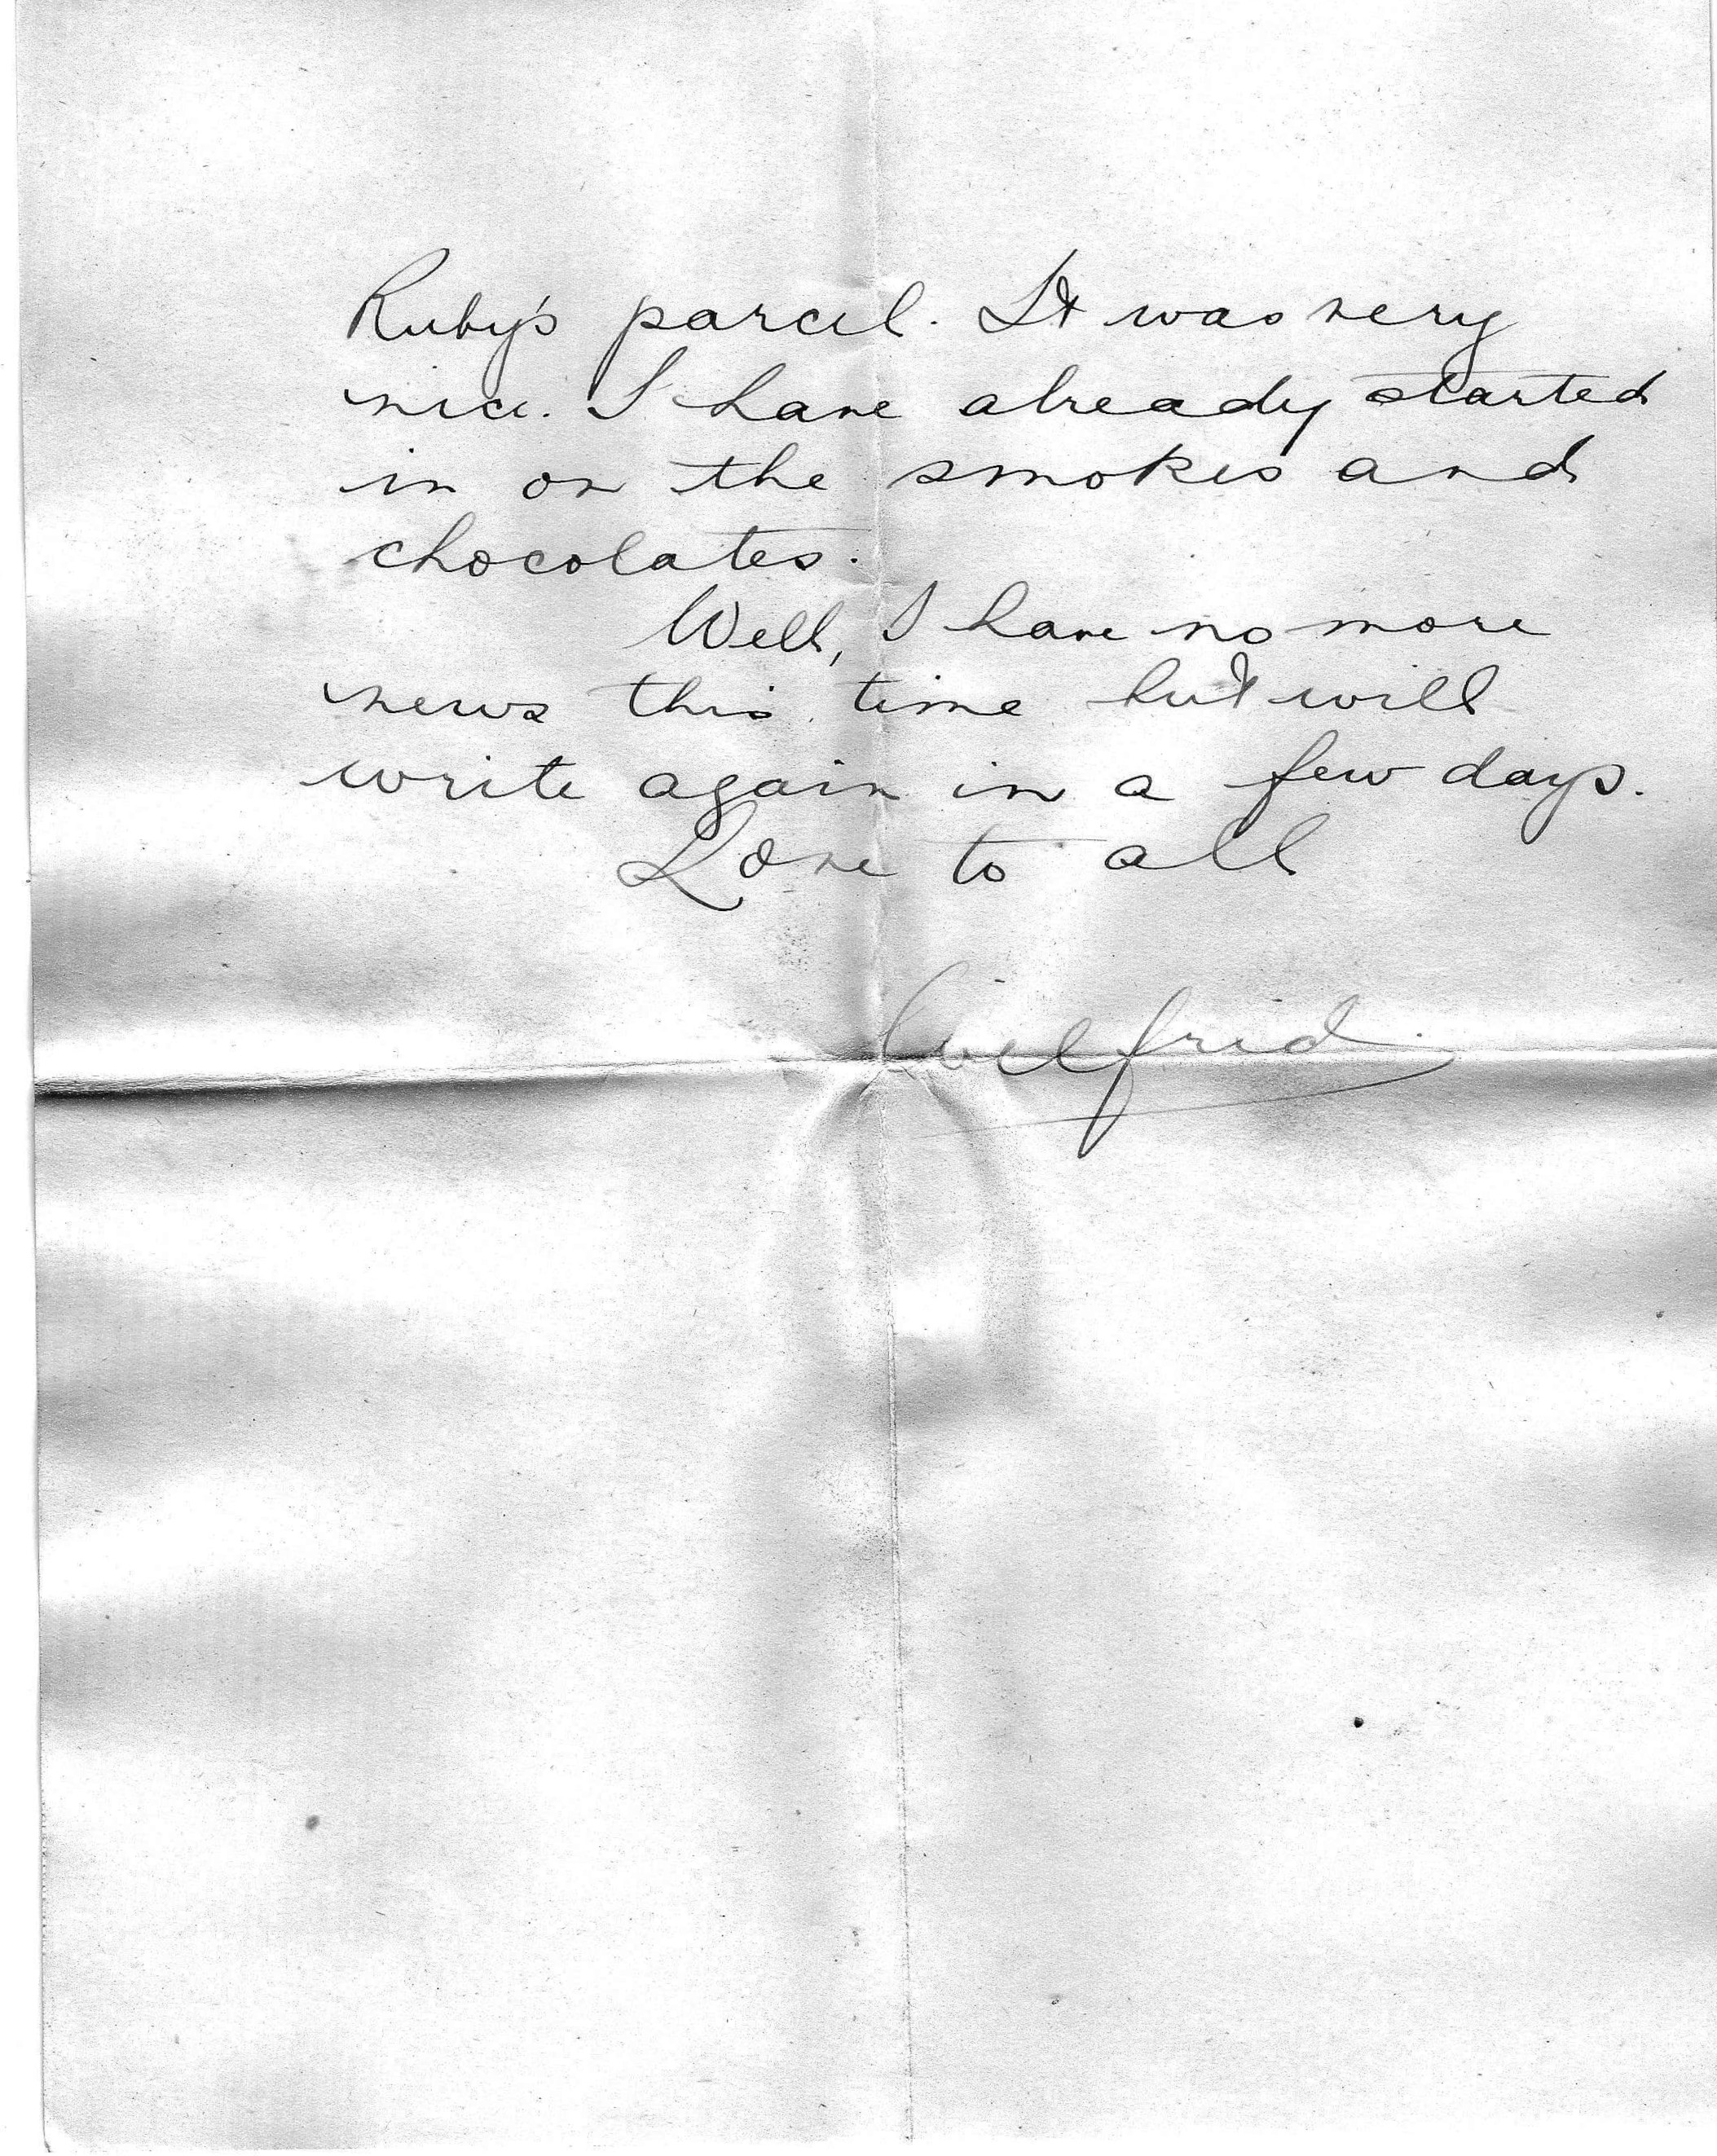 Ruby's parcel. It was very
nice. I have already started
in on the smokes and
chocolates.
Well, I have no more
news this time but will
write again in a few days.
Love to all
Wilfrid